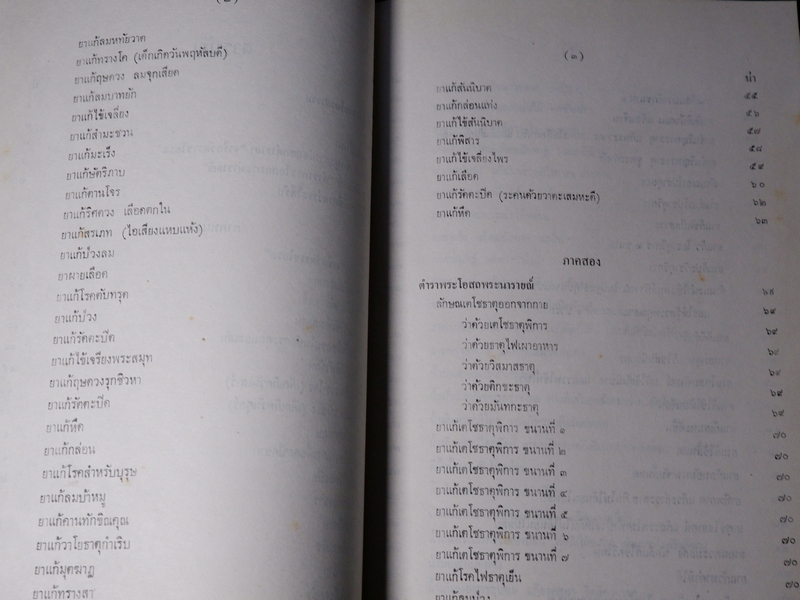 (๒)
ยาแก้ลมหทัยวาต
ยาแก้ทรางโค (เด็กเกิดวันพฤหัสบดี)
ยาแก้ฤษดวง ลมจุกเสียด
ยาแก้ลมบาทยัก
ยาแก้ไข้เจลียง
ยาแก้สำมะชวน
ยาแก้มะเร็ง
ยาแก้ษัตริภาบ
ยาแก้ดานโจร
ยาแก้ริศดวง เลือดตกใน
ยาแก้สรเภท (ไอเสียงแหบแห้ง)
ยาแก้ป่วงลม
ยาผายเลือด
ยาแก้โรคตับทรุด
ยาแก้ป่วง
ยาแก้รัตตะปิต
ยาแก้ไข้เจรียงพระสมุท
ยาแก้ฤษดวงรุกชิวหา
ยาแก้รัตตะปิต
ยาแก้หืด
ยาแก้กล่อน
ยาแก้โรคสำหรับบุรุษ
ยาแก้ลมบ้าหมู
ยาแก้ดานทักขิณคุณ
ยาแก้วาโยธาตุกำเริบ
ยาแก้มุตฆาฏ
(๓)
น่า
ยาแก้สันนิบาต ๕๕
ยาแก้กล่อนแห่ง ๕๖
ยาแก้ไข้สันนิบาต ๕๗
ยาแก้พิสาร ๕๘
ยาแก้ไข้เจลียงไพร ๕๙
ยาแก้เลือด ๖๐
ยาแก้รัตตะปิต (ระคนด้วยวาตะเสมหะดี) ๖๒
ยาแก้หืด ๖๓
ภาคสอง
ตำราพระโอสถพระนารายณ์ ๖๙
ลักษณเตโชธาตุออกจากกาย ๖๙
ว่าด้วยเตโชธาตุพิการ ๖๙
ว่าด้วยธาตุไฟเผาอาหาร ๖๙
ว่าด้วยวิสมาสธาตุ ๖๙
ว่าด้วยติกขะธาตุ ๖๙
ว่าด้วยมันทกะธาตุ ๖๙
ยาแก้เตโชธาตุพิการ ขนานที่ ๑ ๗๐
ยาแก้เตโชธาตุพิการ ขนานที่ ๒ ๗๐
ยาแก้เตโชธาตุพิการ ขนานที่ ๓ ๗๐
ยาแก้เตโชธาตุพิการ ขนานที่ ๔ ๗๐
ยาแก้เตโชธาตุพิการ ขนานที่ ๕ ๗๐
ยาแก้เตโชธาตุพิการ ขนานที่ ๖ ๗๐
ยาแก้เตโชธาตุพิการ ขนานที่ ๗ ๗๐
ยาแก้โรคไฟธาตุเย็น ๗๐